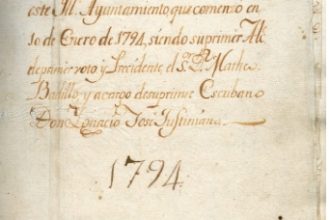 este M. Ayuntamiento, que comenzó en
10 de Enero de 1794, siendo su primer Alc
de primer voto y Presidente el S.r D. Mathe
Badillo y acargo de suprime Escuban
Don Ygnacio Jose Justinian
1794